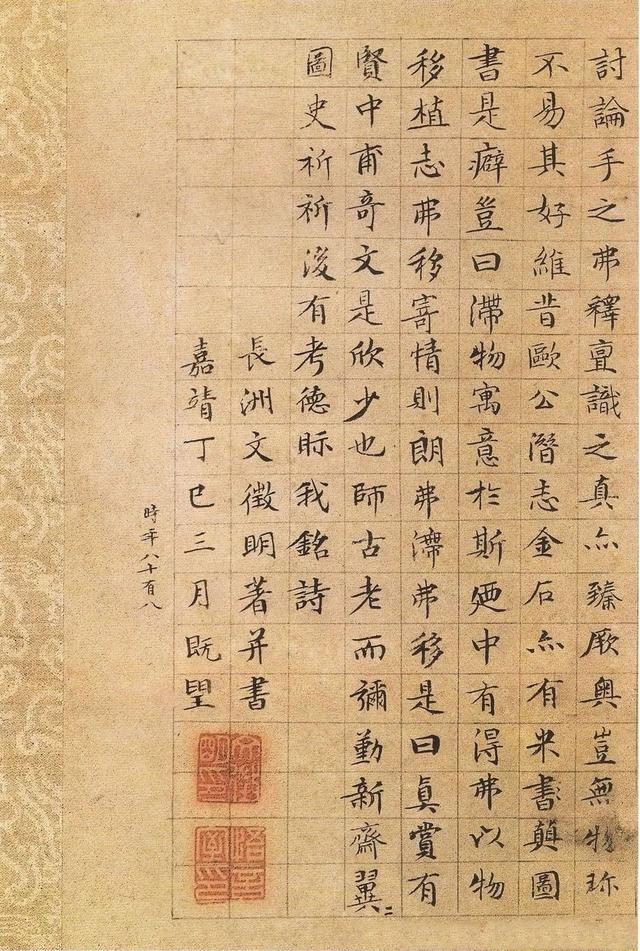 討論手之弗釋亶識之真亦臻厥奧豈無物珎
不易其好維昔歐公潛志金石亦有米書顛圖
書是癖豈曰滯物寓意於斯廼中有得弗以物
移植志弗移寄情則朗弗滯弗移是曰眞賞有
賢中甫奇文是欣少也師古老而彌勤新齋翼〻
圖史祈祈後有考德眎我銘詩
長洲文徵明著并書
嘉靖丁巳三月既望
時年八十有八
文徵明印
悟言室印